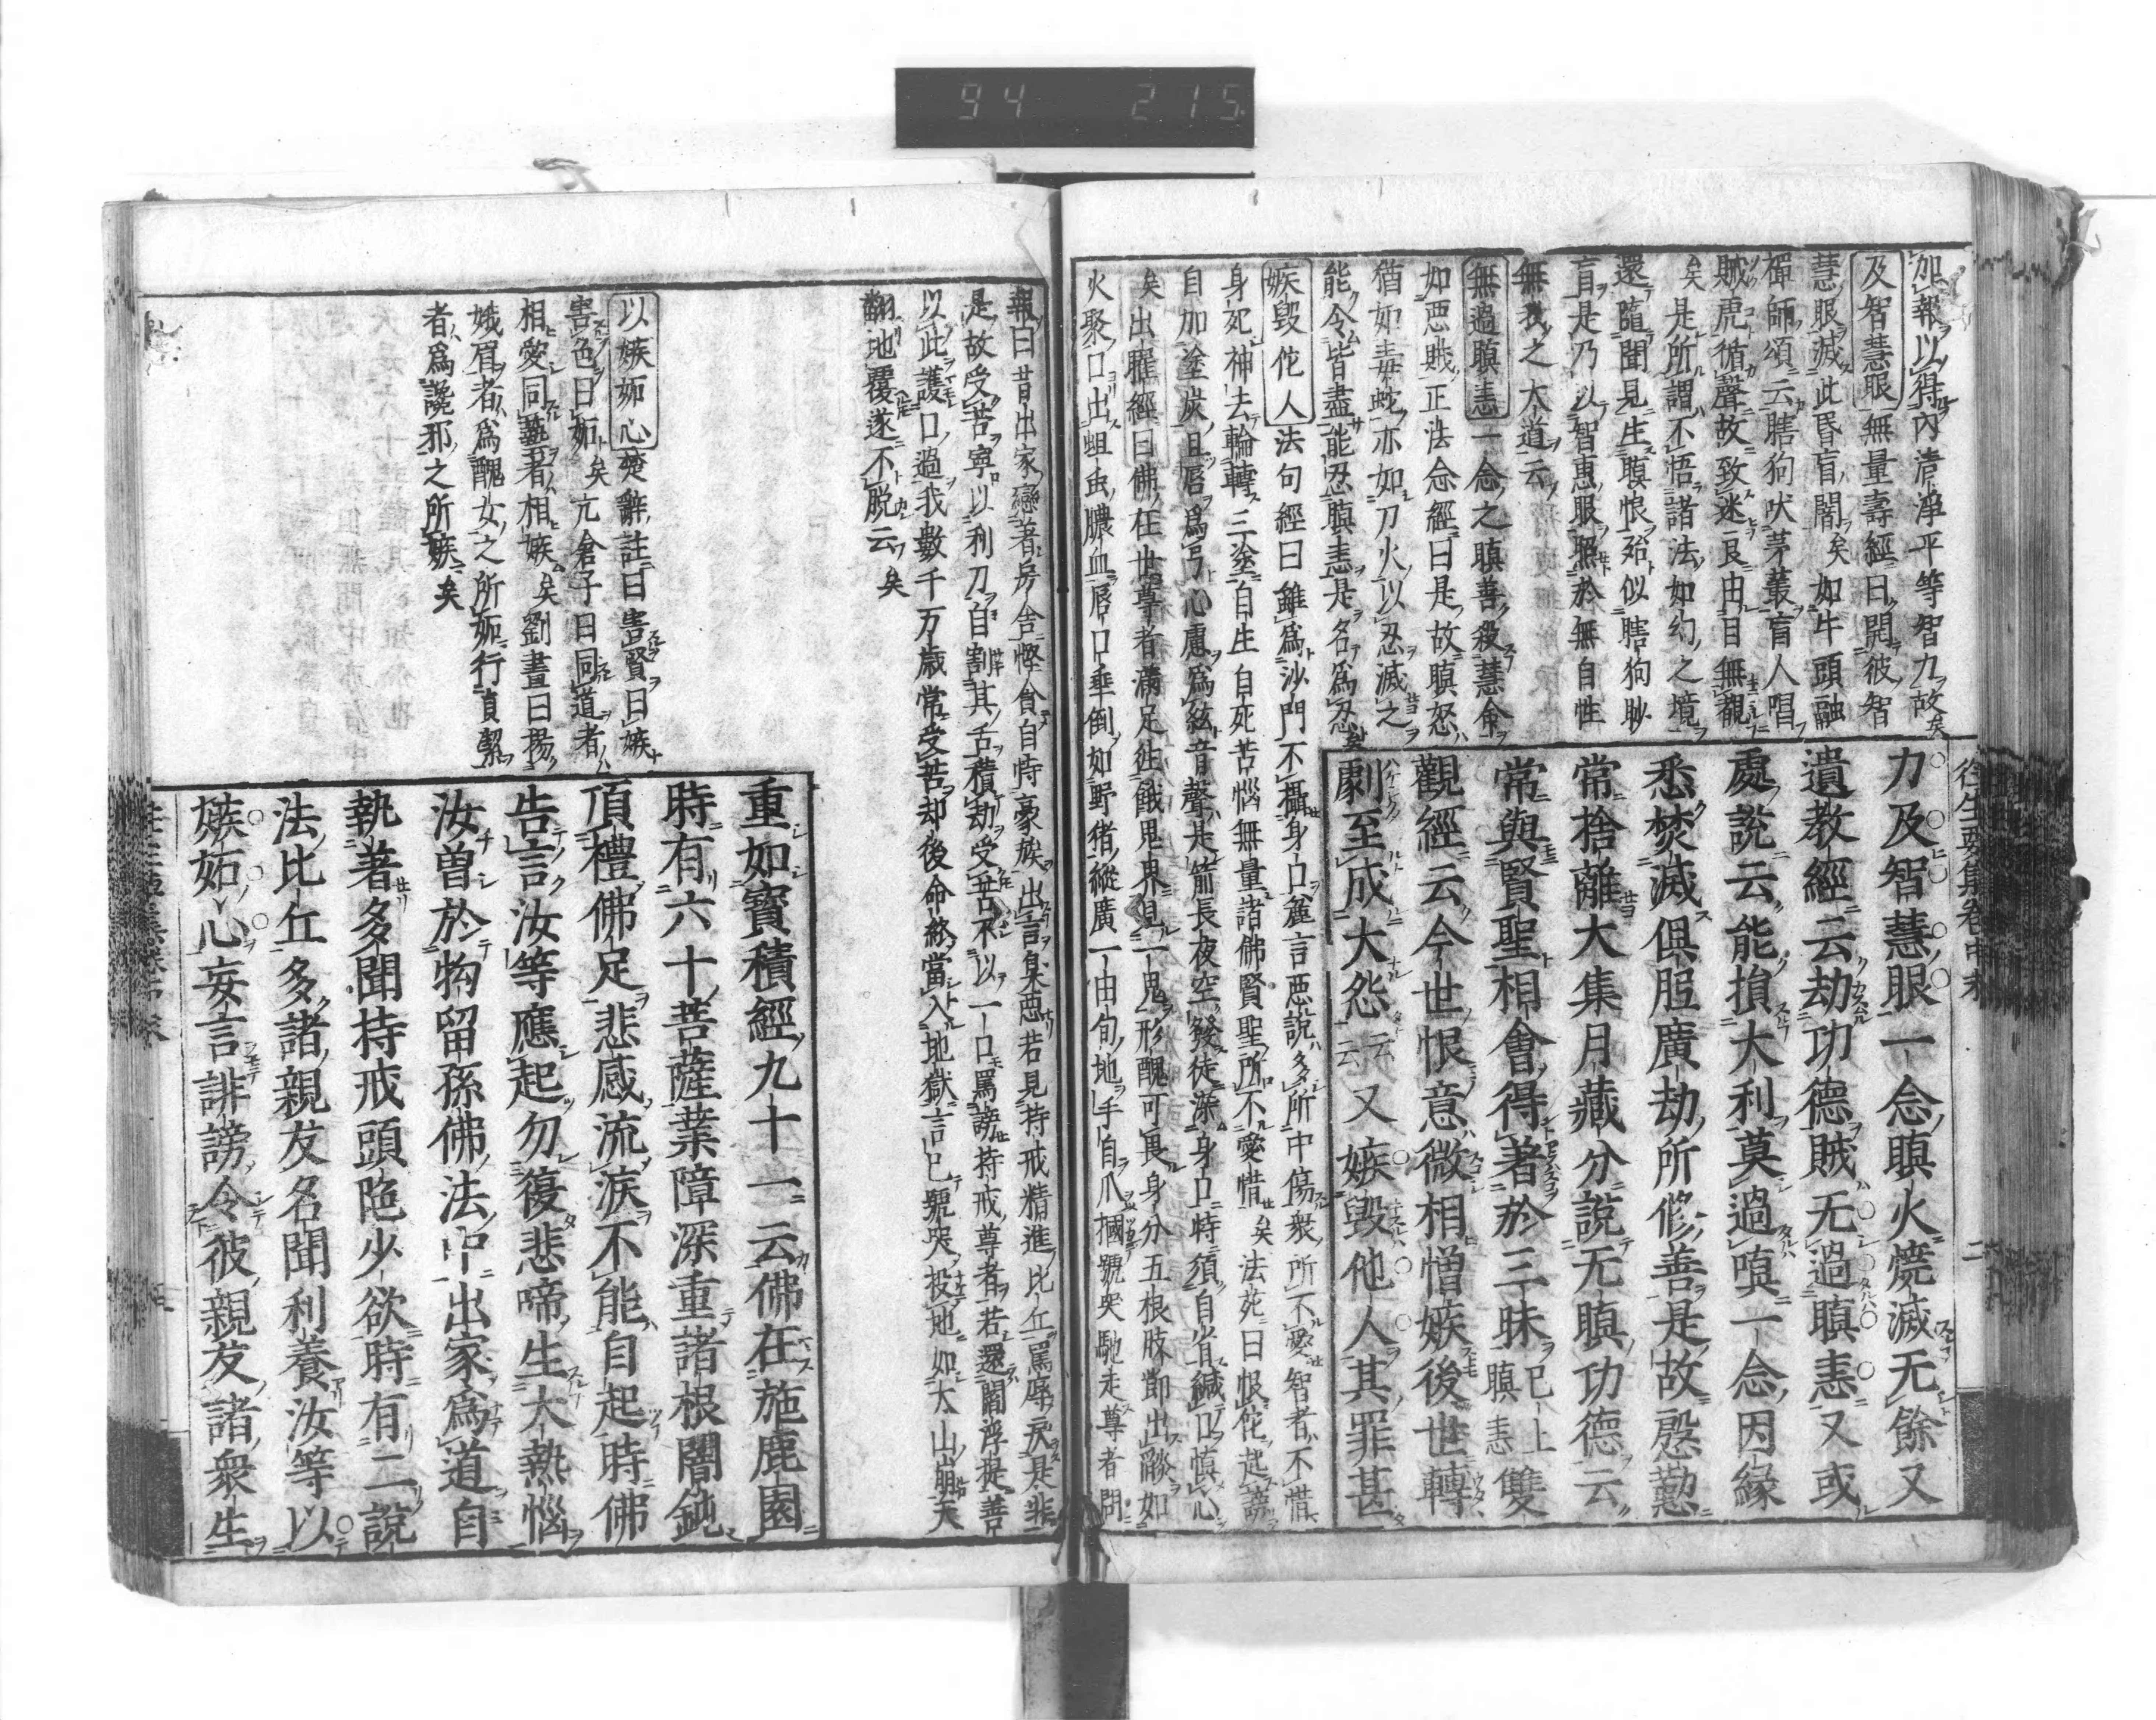 94 215
加報以得內淸淨平等智力故矣
及智慧眼無量壽經曰開彼智
慧眼滅此昏盲闇矣如牛頭融
禪師頌云瞎狗吠茅叢盲人唱
賊虎循聲故致迷良由目無覩
矣是所謂不悟諸法如幻之境
還隨聞見生瞋恨殆似瞎狗眇
盲是乃以智惠眼照於無自性
無我之大道云
無過瞋恚一念之瞋善殺慧命
如惡賊正法念經曰是故瞋怒
猶如毒蛇亦如刀火以忍滅之
能令皆盡能忍瞋恚是名爲忍矣
嫉毀佗人法句經曰雖爲沙門不攝身口麁言惡說多所中傷衆所不愛智者不惜
身死神去輪轉三塗自生自死苦惱無量諸佛賢聖所不愛惜矣法苑曰恨佗起謗
自加塗炭且唇爲弓心慮爲絃音聲是箭長夜空發徒染身口特須自省緘口愼心
矣出曜經曰佛在世尊者滿足徃餓鬼界見一鬼形醜可畏身分五根肢節出燄如
火聚口出蛆虫膿血唇口垂倒如野猪縱廣一由旬地手自爪摑號哭馳走尊者問
往生要集卷中末
二
力及智慧眼一念瞋火燒滅无餘又
遺敎經云劫功德賊无過瞋恚又或
處說云能損大利莫過嗔一念因緣
悉焚滅俱胝廣劫所修善是故慇懃
常捨離大集月藏分說无瞋功德云
常與賢聖相會得著於三昧已上瞋恚雙
觀經云今世恨意微相憎嫉後世轉
劇至成大怨云云又嫉毀他人其罪甚
報曰昔出家戀著房舍慳貪自恃豪族出言臭惡若見持戒精進比丘罵辱戾是非
是故受苦寧以利刀自割其舌積劫受苦不以一口罵謗持戒尊者若還閻浮提善
以此護口過我數千万歲常受苦却後命終當入地獄言已號哭投地如大山崩天
翻地覆遂不脫云矣
以嫉妬心楚辭註曰害賢曰嫉
害色曰妬矣亢倉子曰同道者
相愛同藝者相嫉矣劉晝曰揚
娥眉者爲醜女之所妬行貞潔
者爲讒邪之所嫉矣
重如寶積經九十一云佛在施鹿園
時有六十菩薩業障深重諸根闇鈍
頂禮佛足悲感流淚不能自起時佛
告言汝等應起勿復悲啼生大熱惱
汝曾於拘留孫佛法中出家爲道自
執著多聞持戒頭陁少欲時有二說
法比丘多諸親友名聞利養汝等以
嫉妬心妄言誹謗令彼親友諸衆生